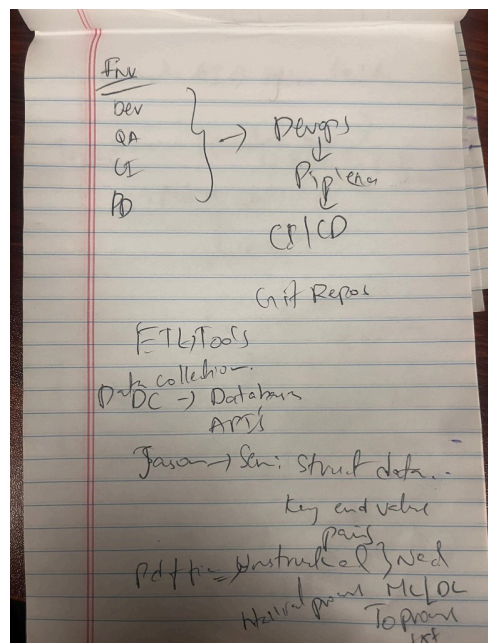 Env
Dev
QA
UI
PD
→ Devops
↓
Piplena
↓
CI/CD
Git Repos
ETL Tools
Data collection.
DC → Database
API's
Jason → Semi Struct data..
Key and value
pairs
Pdf file → Unstructured } Need
process ML/DL
To process